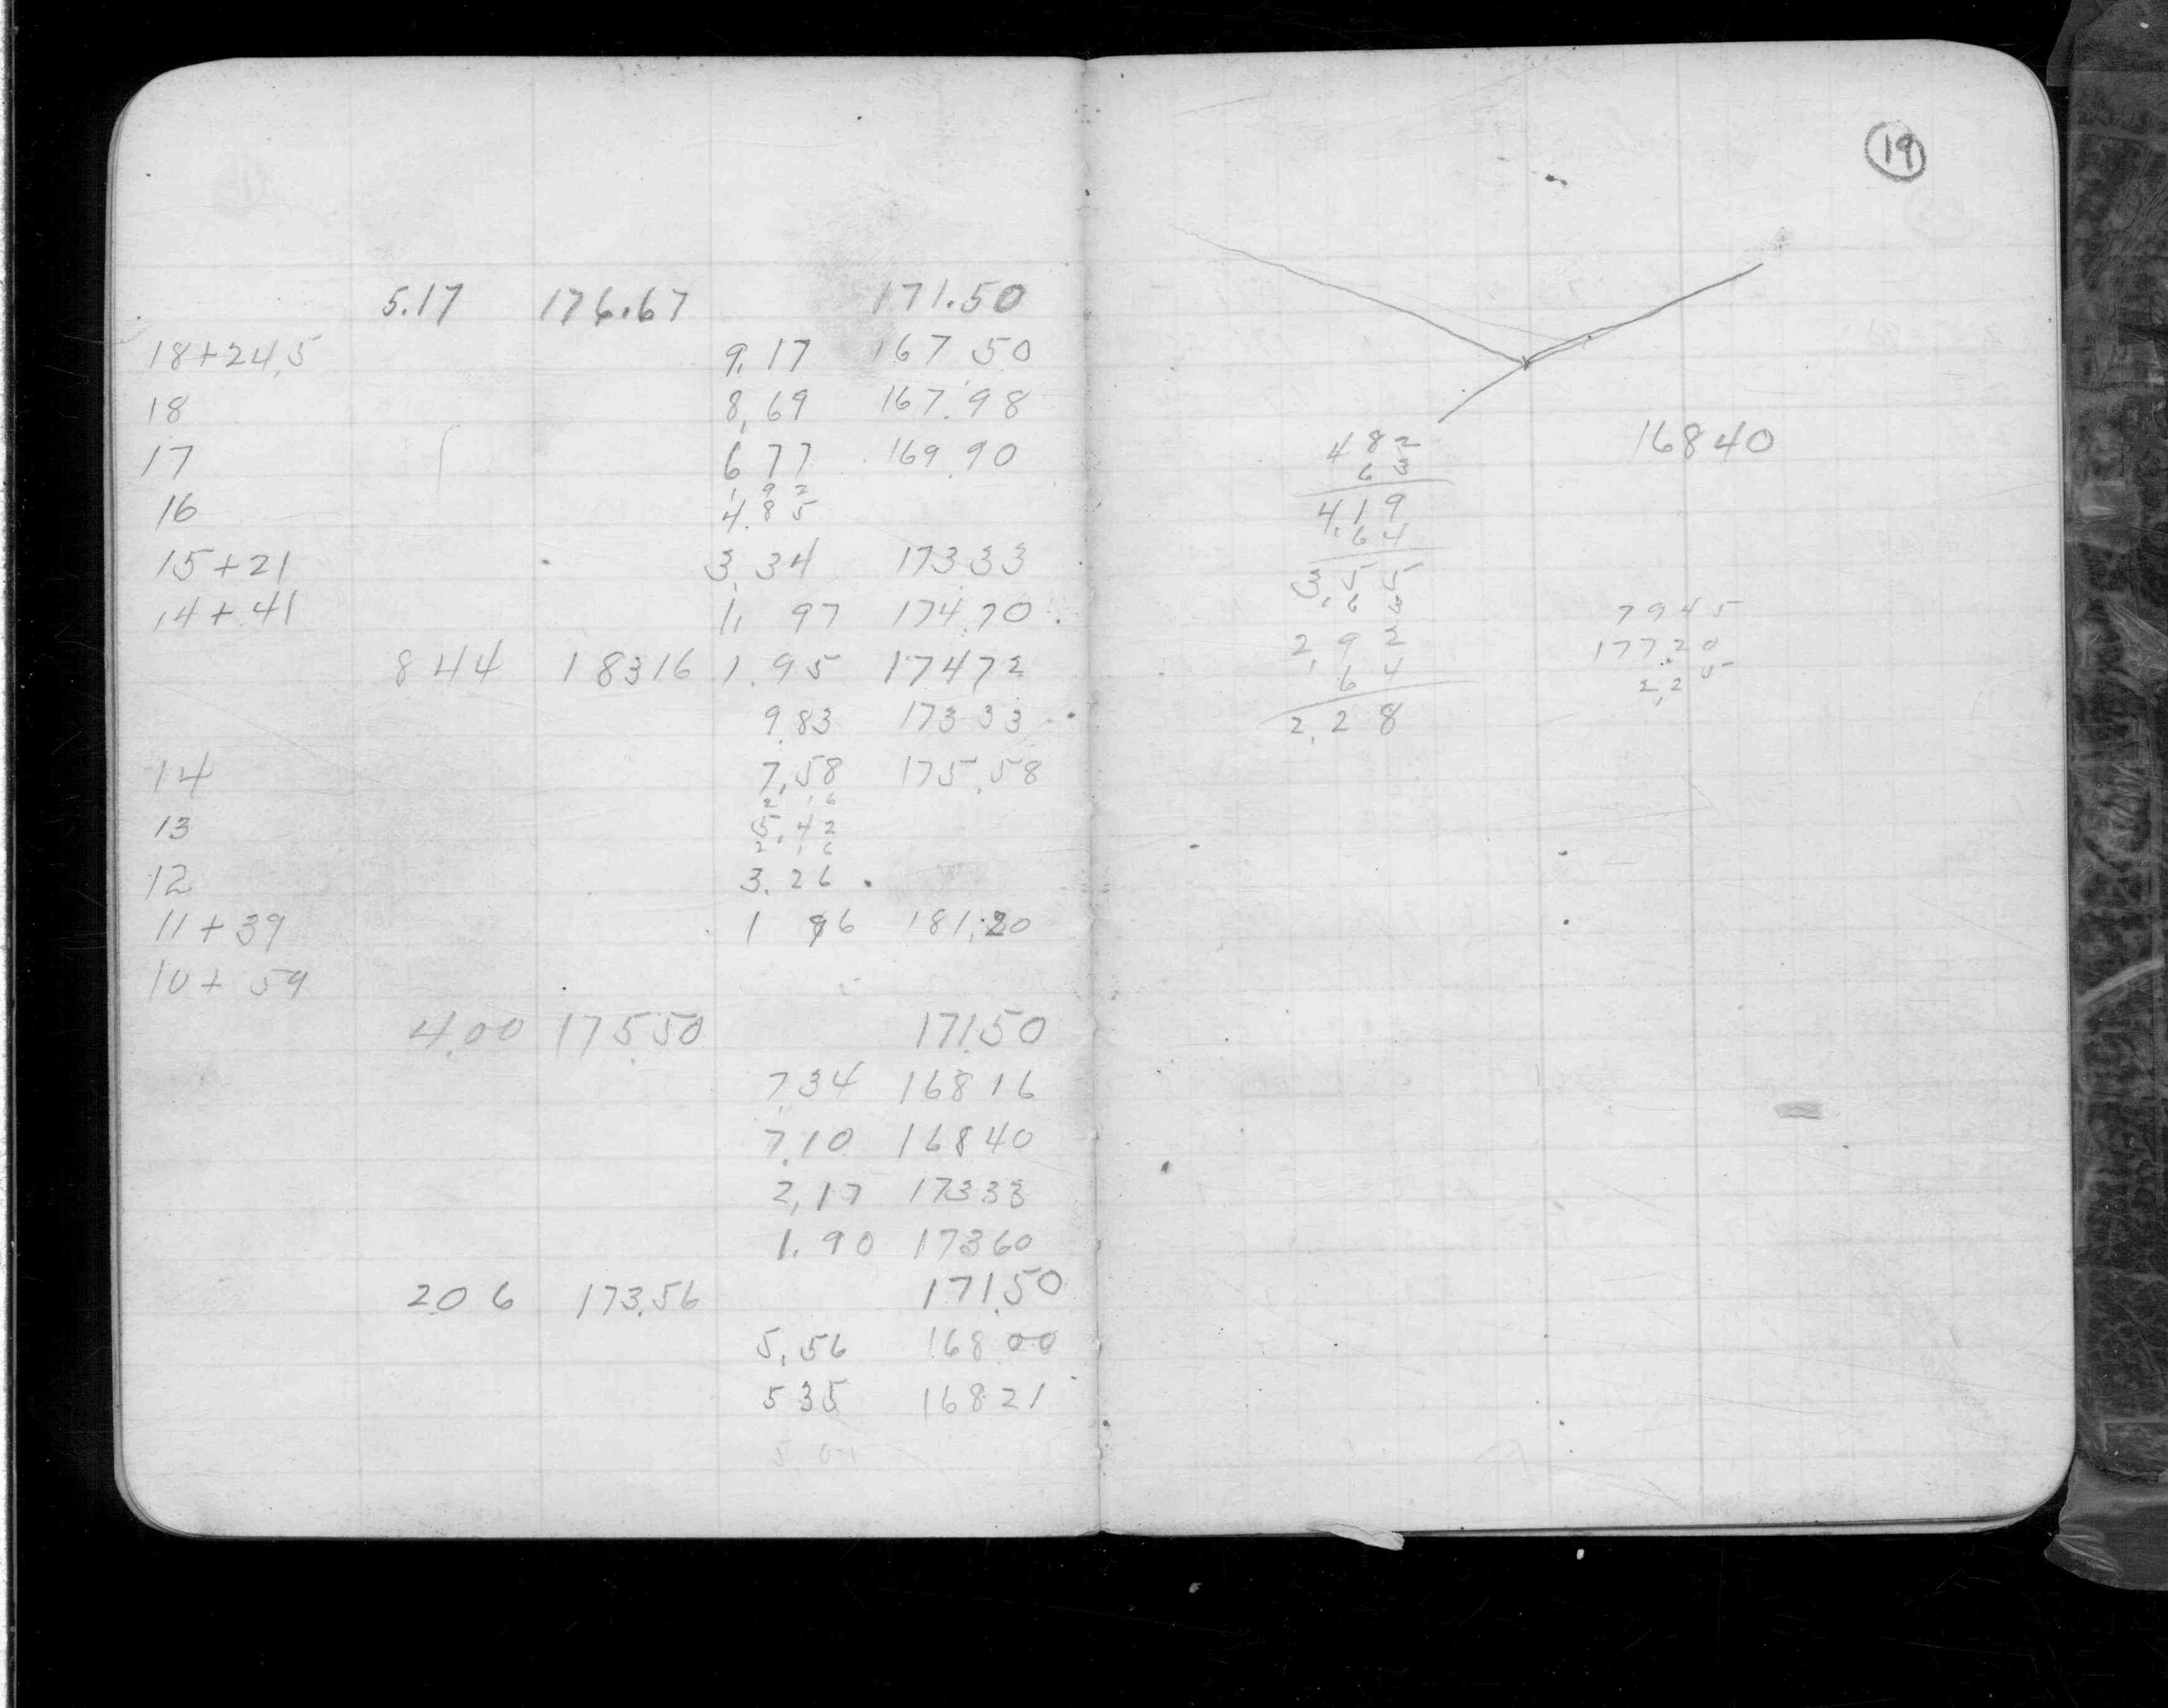 5.17 176.67 171.50
18+24.5 9.17 167 50
18 8.69 167.98
17 6 77 169.90
1 92
16 4.85
15+21 3.34 173 33
14+41 1. 97 174.70
8 44 183 16 1.95 174 72
9.83 173 33
14 7.58 175.58
2 16
13 5.42
2 16
12 3.26
11+39 1 96 181.20
10+59
4.00 175.50 171.50
7.34 168 16
7.10 168 40
2.17 173 33
1.90 173 60
2.06 173.56 171.50
5.56 168 00
5 35 168 21
19
4 82 168 40
63
4.19
64
3.55
63 7945
2.92 177.20
64 2.25
2.28